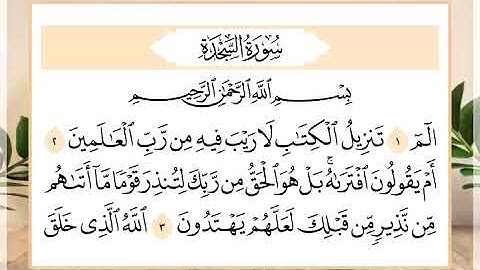 سُورَةُ السَّجْدَةِ
بِسْمِ اللَّهِ الرَّحْمَٰنِ الرَّحِيمِ
الٓمٓ ١ تَنزِيلُ ٱلْكِتَٰبِ لَا رَيْبَ فِيهِ مِن رَّبِّ ٱلْعَٰلَمِينَ ٢
أَمْ يَقُولُونَ ٱفْتَرَىٰهُ ۚ بَلْ هُوَ ٱلْحَقُّ مِن رَّبِّكَ لِتُنذِرَ قَوْمًا مَّآ أَتَىٰهُم
مِّن نَّذِيرٍ مِّن قَبْلِكَ لَعَلَّهُمْ يَهْتَدُونَ ٣ ٱللَّهُ ٱلَّذِى خَلَقَ